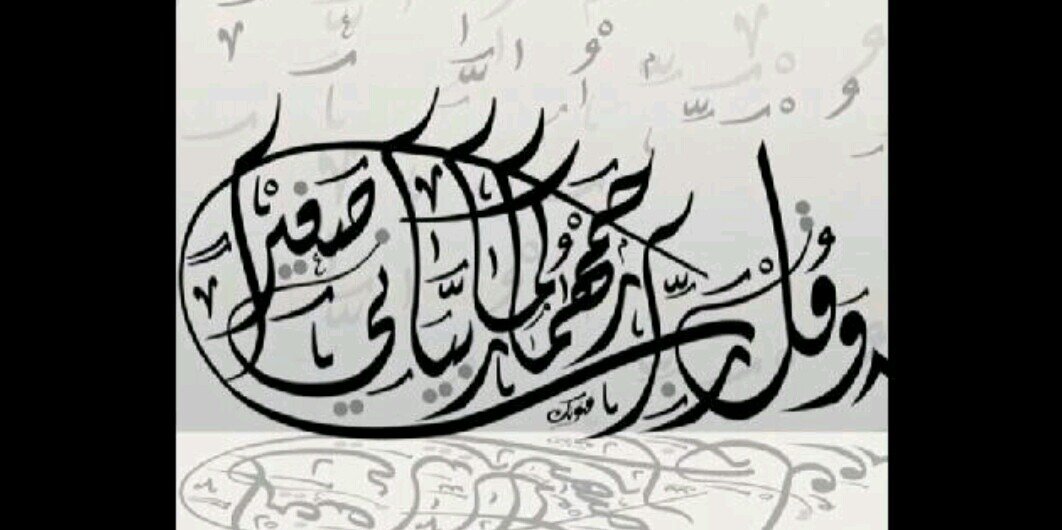 وَقُلْ رَبِّ ارْحَمْهُمَا كَمَا رَبَّيَانِي صَغِيرًا